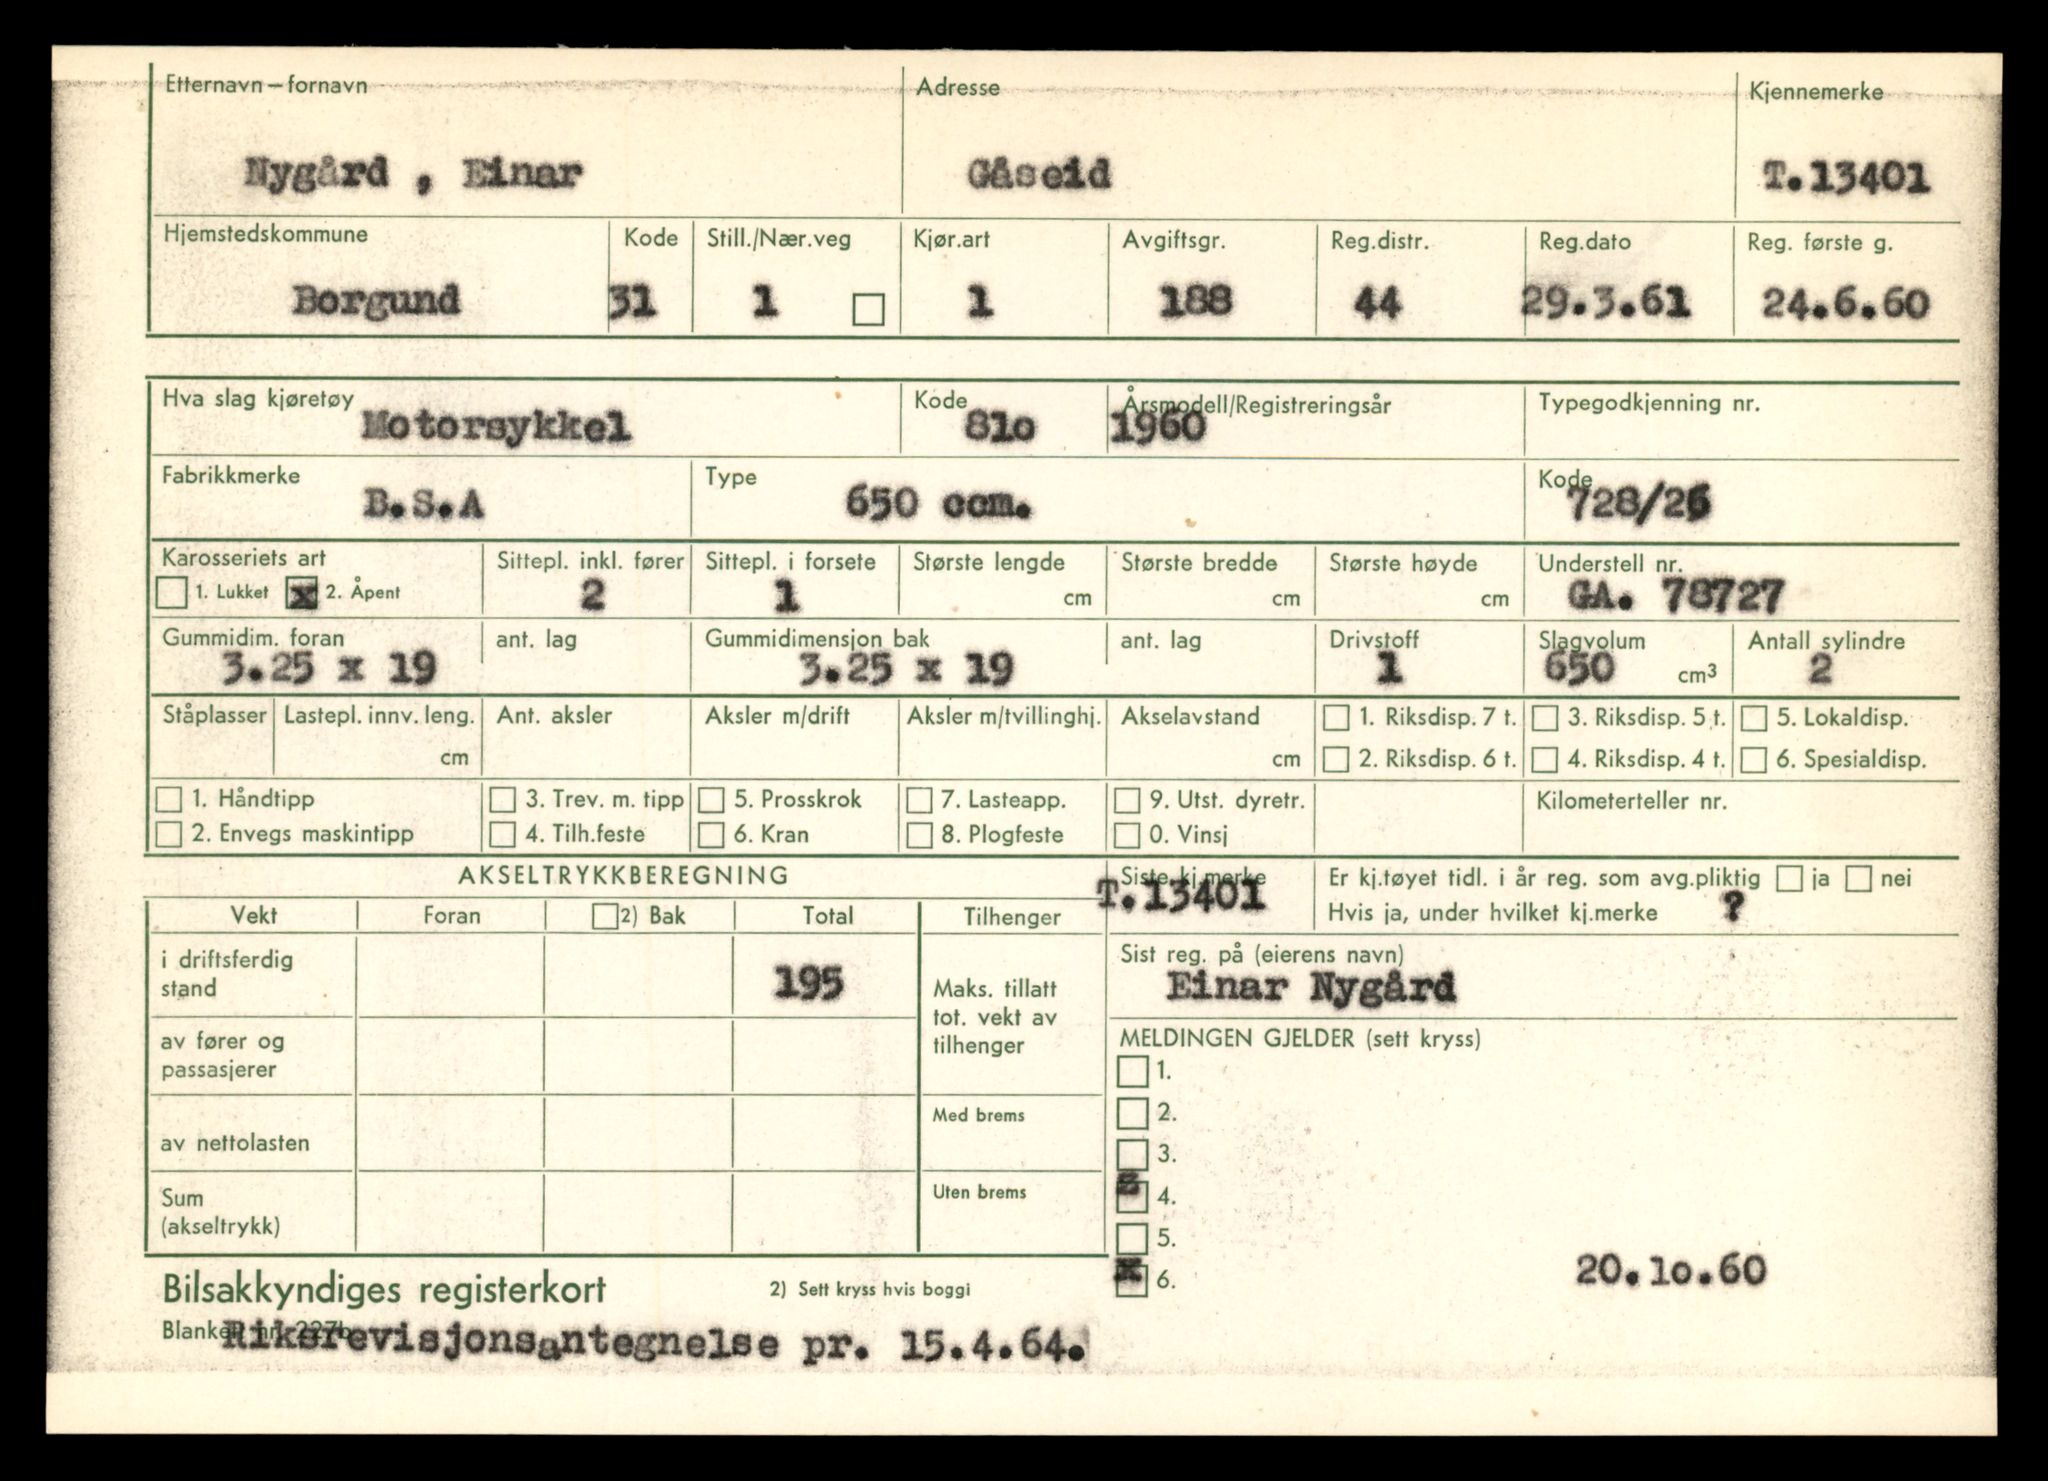 Etternavn – fornavn Adresse Kjennemerke
Nygård , Einar Gåseid T.13401
Hjemstedskommune Kode Still./Nær.veg Kjør.art Avgiftsgr. Reg.distr. Reg.dato Reg. første g.
Borgund 31 1 1 188 44 29.3.61 24.6.60
Hva slag kjøretøy Kode Årsmodell/Registreringsår Typegodkjenning nr.
Motorsykkel 81o 1960
Fabrikkmerke Type Kode
B.S.A 650 ccm. 728/26
Karosseriets art Sittepl. inkl. fører Sittepl. i forsete Største lengde Største bredde Største høyde Understell nr.
1. Lukket x 2. Åpent 2 1 cm cm cm GA. 78727
Gummidim. foran ant. lag Gummidimensjon bak ant. lag Drivstoff Slagvolum Antall sylindre
3.25 x 19 3.25 x 19 1 650 cm3 2
Ståplasser Lastepl. innv. leng. Ant. aksler Aksler m/drift Aksler m/tvillinghj. Akselavstand 1. Riksdisp. 7 t. 3. Riksdisp. 5 t. 5. Lokaldisp.
cm cm 2. Riksdisp. 6 t. 4. Riksdisp. 4 t. 6. Spesialdisp.
1. Håndtipp 3. Trev. m. tipp 5. Prosskrok 7. Lasteapp. 9. Utst. dyretr. Kilometerteller nr.
2. Envegs maskintipp 4. Tilh.feste 6. Kran 8. Plogfeste 0. Vinsj
AKSELTRYKKBEREGNING Siste kj.merke Er kj.tøyet tidl. i år reg. som avg.pliktig ja nei
T.13401 Hvis ja, under hvilket kj.merke ?
Vekt Foran 2) Bak Total Tilhenger
i driftsferdig stand 195
Maks. tillatt tot. vekt av tilhenger
Sist reg. på (eierens navn)
Einar Nygård
av fører og passasjerer
MELDINGEN GJELDER (sett kryss)
1.
Med brems 2.
av nettolasten 3.
Sum (akseltrykk) Uten brems 4.
5.
x 6. 20.1o.60
Bilsakkyndiges registerkort 2) Sett kryss hvis boggi
Blankett nr. 227b
Riksrevisjonsantegnelse pr. 15.4.64.